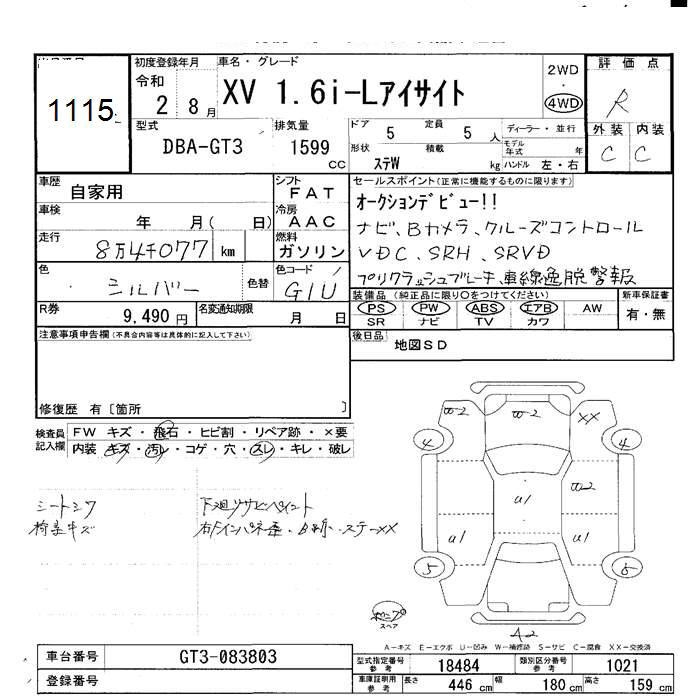 1115
初度登録年月
令和
2 8月
車名・グレード
XV 1.6i-Lアイサイト
2WD
・
4WD
評価点
R
外装 内装
C C
型式
DBA-GT3
排気量
1599
cc
ドア 5 定員 5 人
形状 ステW 積載 kg
ディーラー・並行
モデル年式 年
ハンドル 左・右
車歴
自家用
シフト
FAT
車検
年 月( 日)
冷房
AAC
走行
8万4千077 km
燃料
ガソリン
色
シルバー
色替
色コード
G1U
R券
9,490円
名変通知期限
月 日
セールスポイント(正常に機能するものに限ります)
オークションデビュー!!
ナビ、Bカメラ、クルーズコントロール
VDC、SRH、SRVD
プリクラッシュブレーキ、車線逸脱警報
装備品(純正品に限り○をつけてください)
PS PW ABS エアB AW
SR ナビ TV カワ
新車保証書
有・無
後日品
地図SD
注意事項申告欄(不具合内容等は具体的に記入して下さい)
修復歴 有〔箇所 〕
検査員記入欄
FW キズ・飛石・ヒビ割・リペア跡・×要
内装 キズ・汚レ・コゲ・穴・スレ・キレ・破レ
シートシワ
下廻リサビペイント
W-2 W-2 XX
4 4
U1 W-2
U1 U1
5 6
スペア
A2
A-キズ E-エクボ U-凹み W-補修跡 S-サビ C-腐食 XX-交換済
車台番号
GT3-083803
登録番号
型式指定番号
参考
18484
類別区分番号
参考
1021
車庫証明用
参考
長さ 446 cm 幅 180 cm 高さ 159 cm